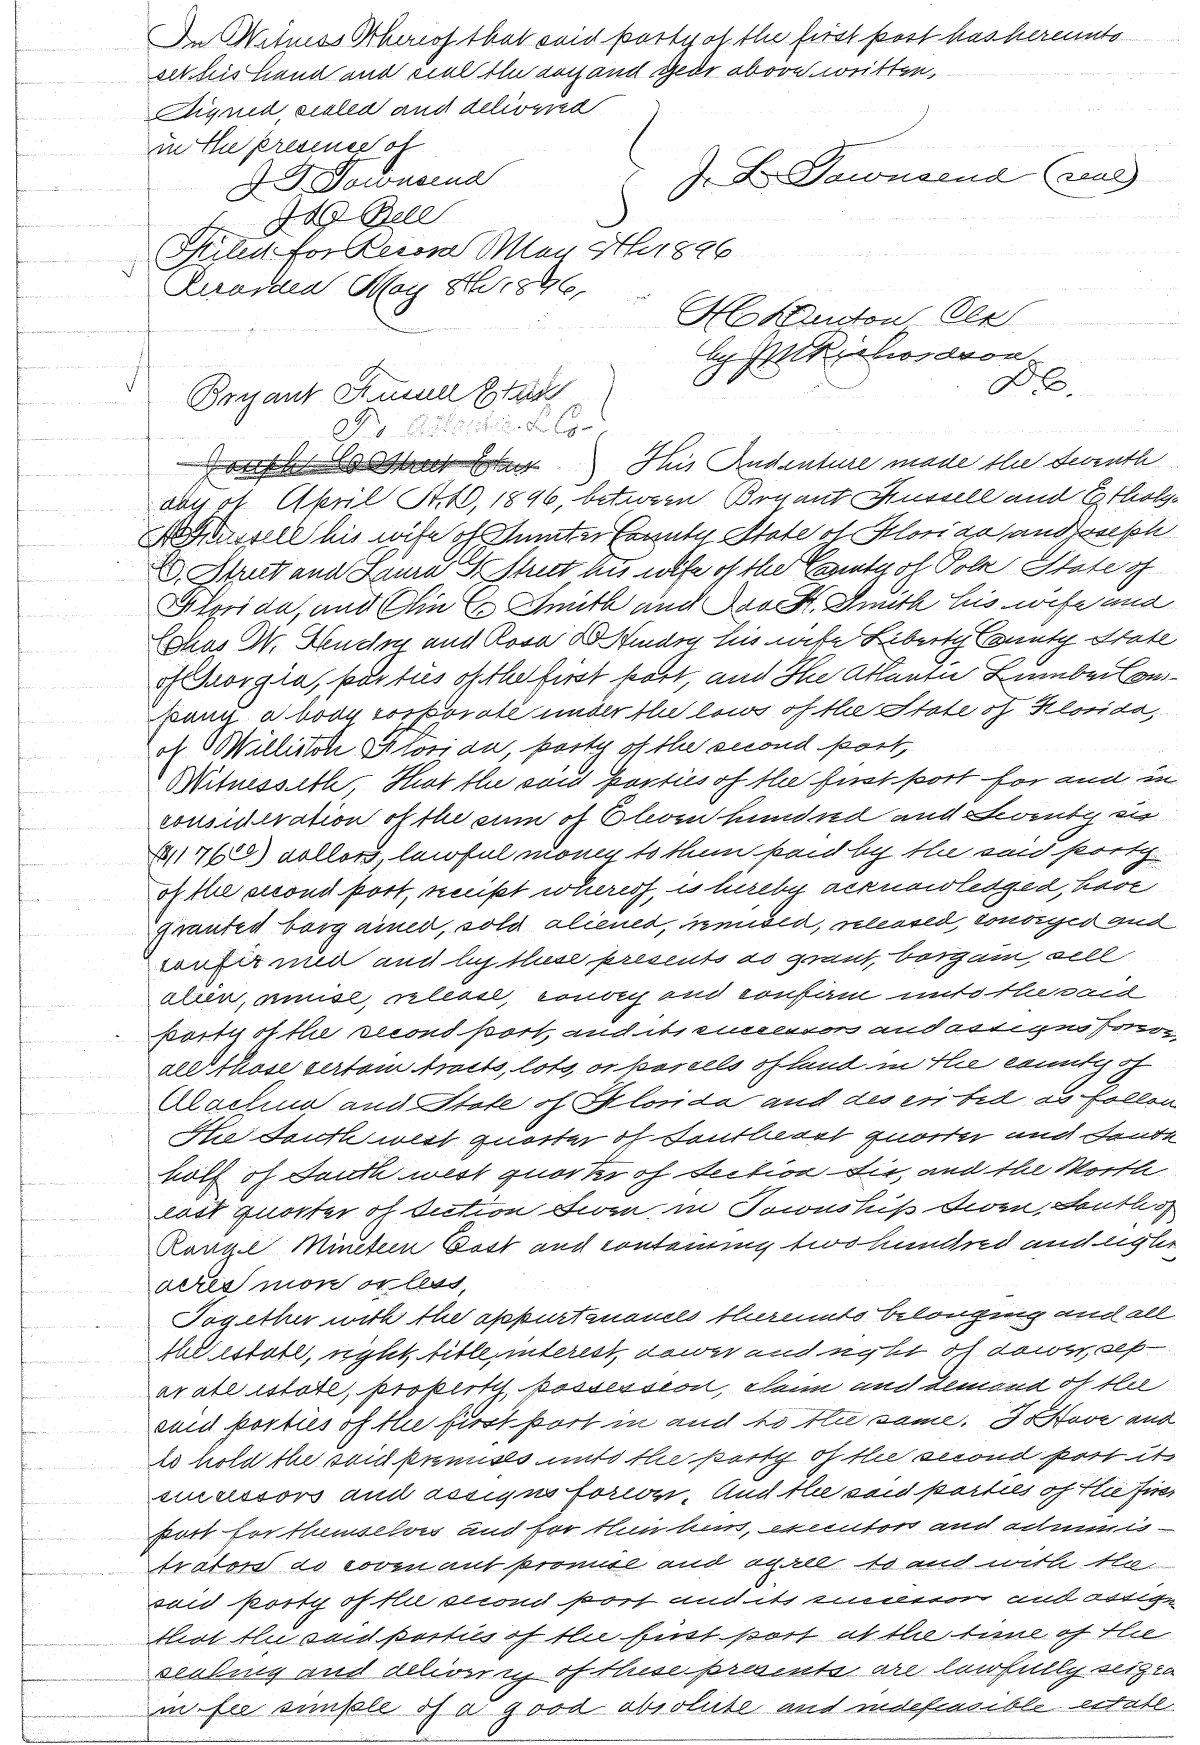 In Witness Whereof that said party of the first part has hereunto
set his hand and seal the day and year above written,
Signed, sealed and delivered
in the presence of
J. L. Townsend (seal)
J T Townsend
Bell
Filed for Record May 8th 1896
Recorded May 8th 1896,
Clk
by Richardson
D C.
Bryant Russell Etal
To Atlantic L Co
Joseph C Street Etux This Indenture made the seventh
day of April A.D, 1896, between Bryant Russell and
Russell his wife of Sumter County State of Florida, and Joseph
C. Street and Laura G Street his wife of the County of Polk State of
Florida, and Olin C. Smith and Ida H. Smith his wife and
Chas W. Hendry and Rosa D Hendry his wife Liberty County State
of Georgia, parties of the first part, and The Atlantic Lumber Com-
pany a body corporate under the laws of the State of Florida,
of Williston Florida, party of the second part,
Witnesseth, That the said parties of the first part for and in
consideration of the sum of Eleven hundred and Seventy six
($1176 00) dollars, lawful money to them paid by the said party
of the second part, receipt whereof, is hereby acknowledged, have
granted bargained, sold aliened, remised, released, conveyed and
confirmed and by these presents do grant, bargain, sell
alien, remise, release, convey and confirm unto the said
party of the second part, and its successors and assigns forever,
all those certain tracts, lots, or parcels of land in the county of
Alachua and State of Florida and described as follow
The South west quarter of Southeast quarter and South
half of South west quarter of Section Six, and the North
east quarter of Section Seven in Township Seven, South of
Range Nineteen East and containing two hundred and eight
acres more or less,
Together with the appurtenances thereunto belonging and all
the estate, right, title, interest, dower and right of dower, sep-
arate estate, property, possession, claim and demand of the
said parties of the first part in and to the same. To Have and
to hold the said premises unto the party of the second part its
successors and assigns forever. And the said parties of the first
part for themselves and for their heirs, executors and adminis-
trators do covenant promise and agree to and with the
said party of the second part and its successors and assigns
that the said parties of the first part at the time of the
sealing and delivery of these presents are lawfully seized
in fee simple of a good absolute and indefeasible estate